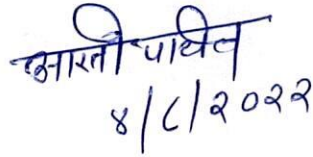 आरती पाटील
४/८/२०२२